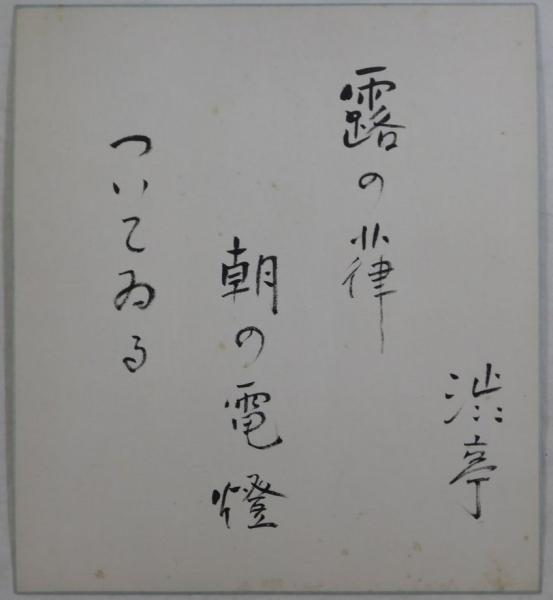 渋亭
露の葎
朝の電燈
ついてゐる